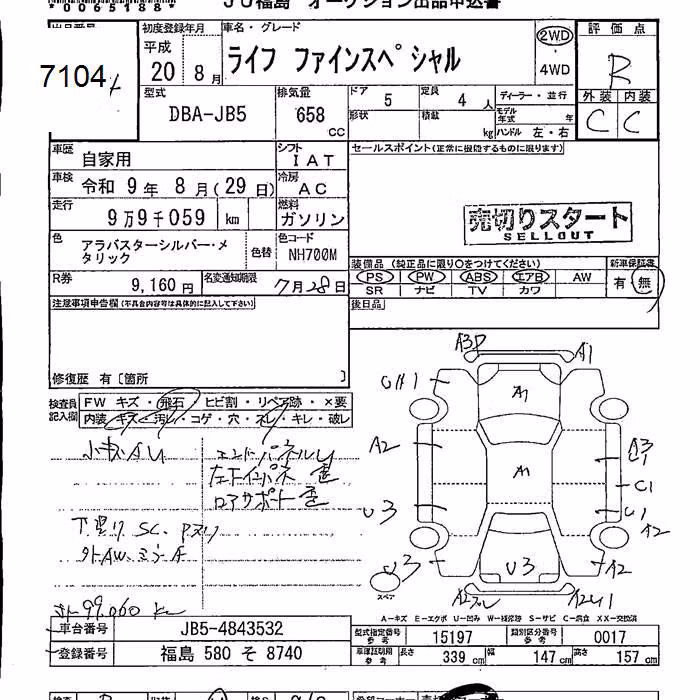 *0065188*
JU福島 オークション出品申込書
出品番号
7104
初度登録年月
平成
20 8月
車名・グレード
ライフ ファインスペシャル
2WD
4WD
評価点
R
外装 内装
C C
型式
DBA-JB5
排気量
658
CC
ドア
5
定員
4 人
形状
積載
kg
ディーラー・並行
モデル年式
年
ハンドル 左・右
車歴
自家用
シフト
IAT
車検
令和 9年 8月(29日)
冷房
AC
走行
9万9千059 km
燃料
ガソリン
色
アラバスターシルバー・メタリック
色替
色コード
NH700M
R券
9,160円
名変通知期限
7月28日
セールスポイント(正常に機能するものに限ります)
売切りスタート
SELLOUT
装備品 (純正品に限り○をつけてください)
PS PW ABS エアB AW
SR ナビ TV カワ
新車保証書
有・無
後日品
注意事項申告欄(不具合内容等は具体的に記入して下さい)
修復歴 有〔箇所 〕
検査員記入欄
FW キズ・飛石 ヒビ割・リペア跡・×要
内装 キズ・汚レ・コゲ・穴・スレ・キレ・破レ
小キズAU
エンドパネルU
左下インパネ
ロアサポート
下廻り SC. Pヌリ
外AW. ミラーA
99,060 km
A3P A1
A1
A2
A1
A3
C1
U3
A2
U3 U3 A2
スペア
A-キズ E-エクボ U-凹み W-補修跡 S-サビ C-腐食 XX-交換済
車台番号
JB5-4843532
登録番号
福島 580 そ 8740
型式指定番号
参考
15197
類別区分番号
参考
0017
車庫証明用
参考
長さ 339 cm
幅 147 cm
高さ 157 cm